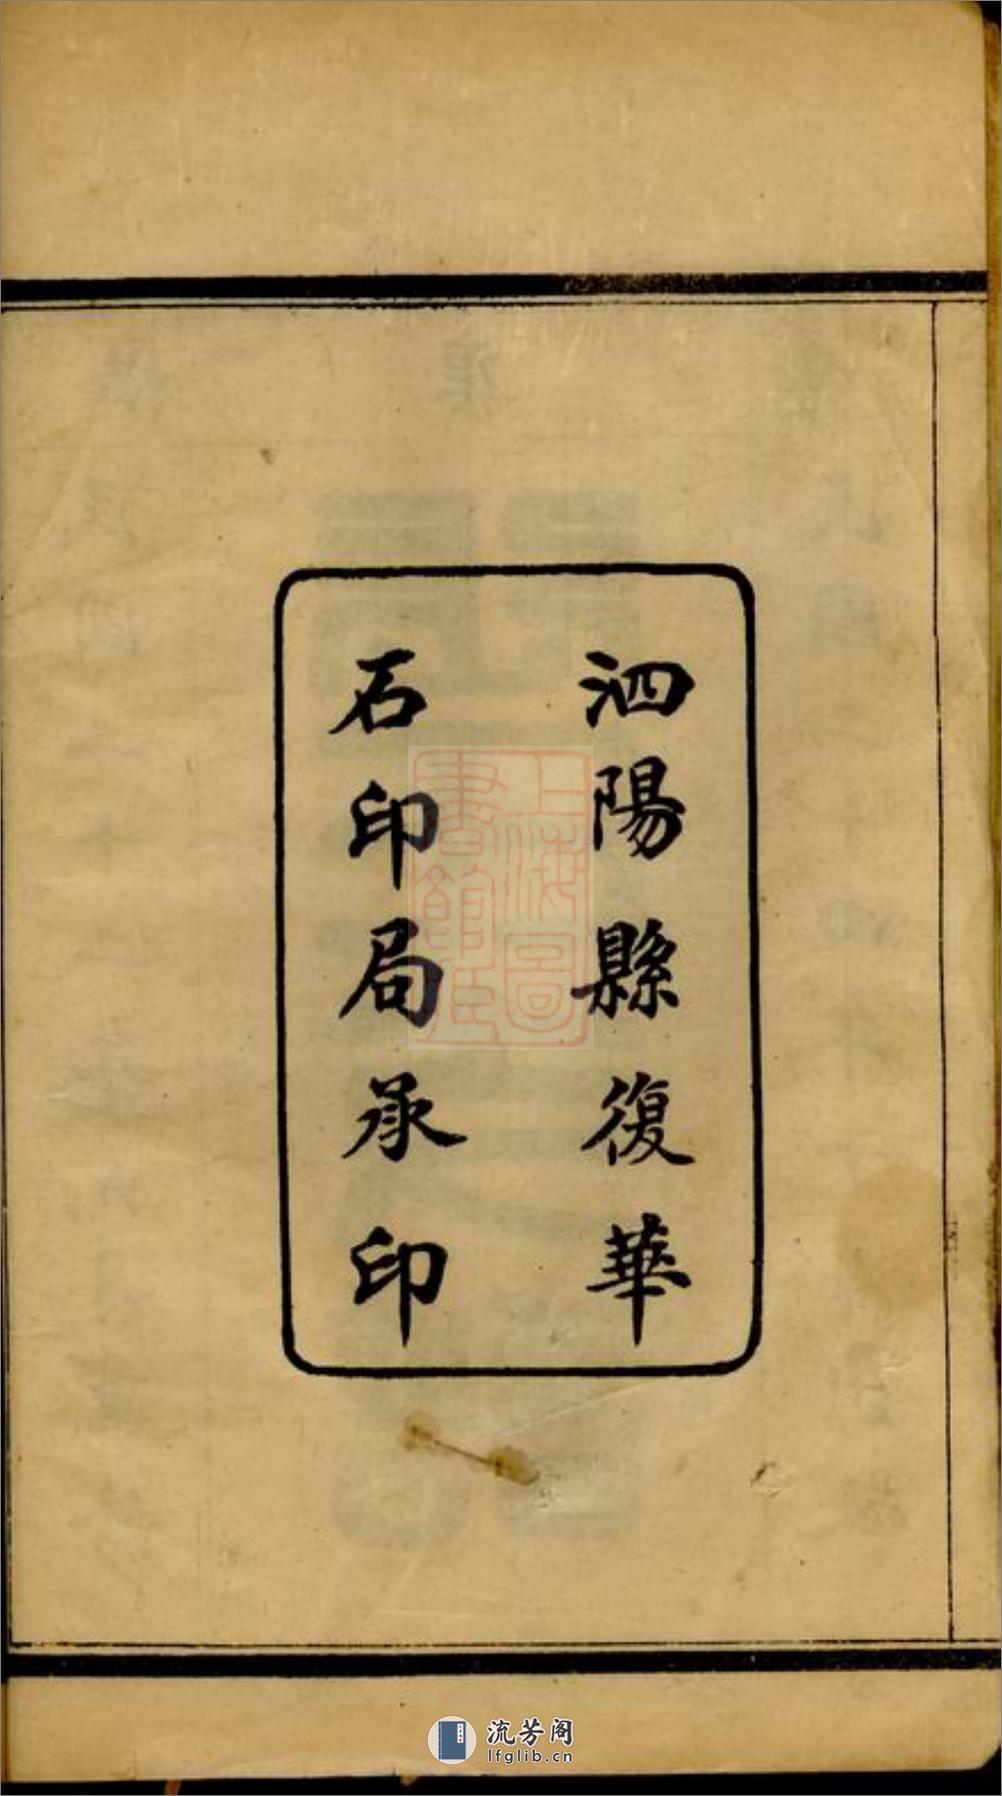 泗陽縣復華
石印局承印
上海圖
書館藏
流芳阁
lfglib.cn